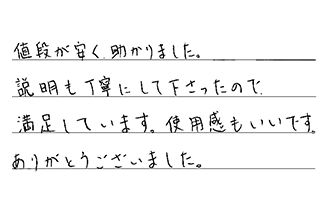 値段が安く、助かりました。
説明も丁寧にして下さったので
満足しています。使用感もいいです。
ありがとうございました。